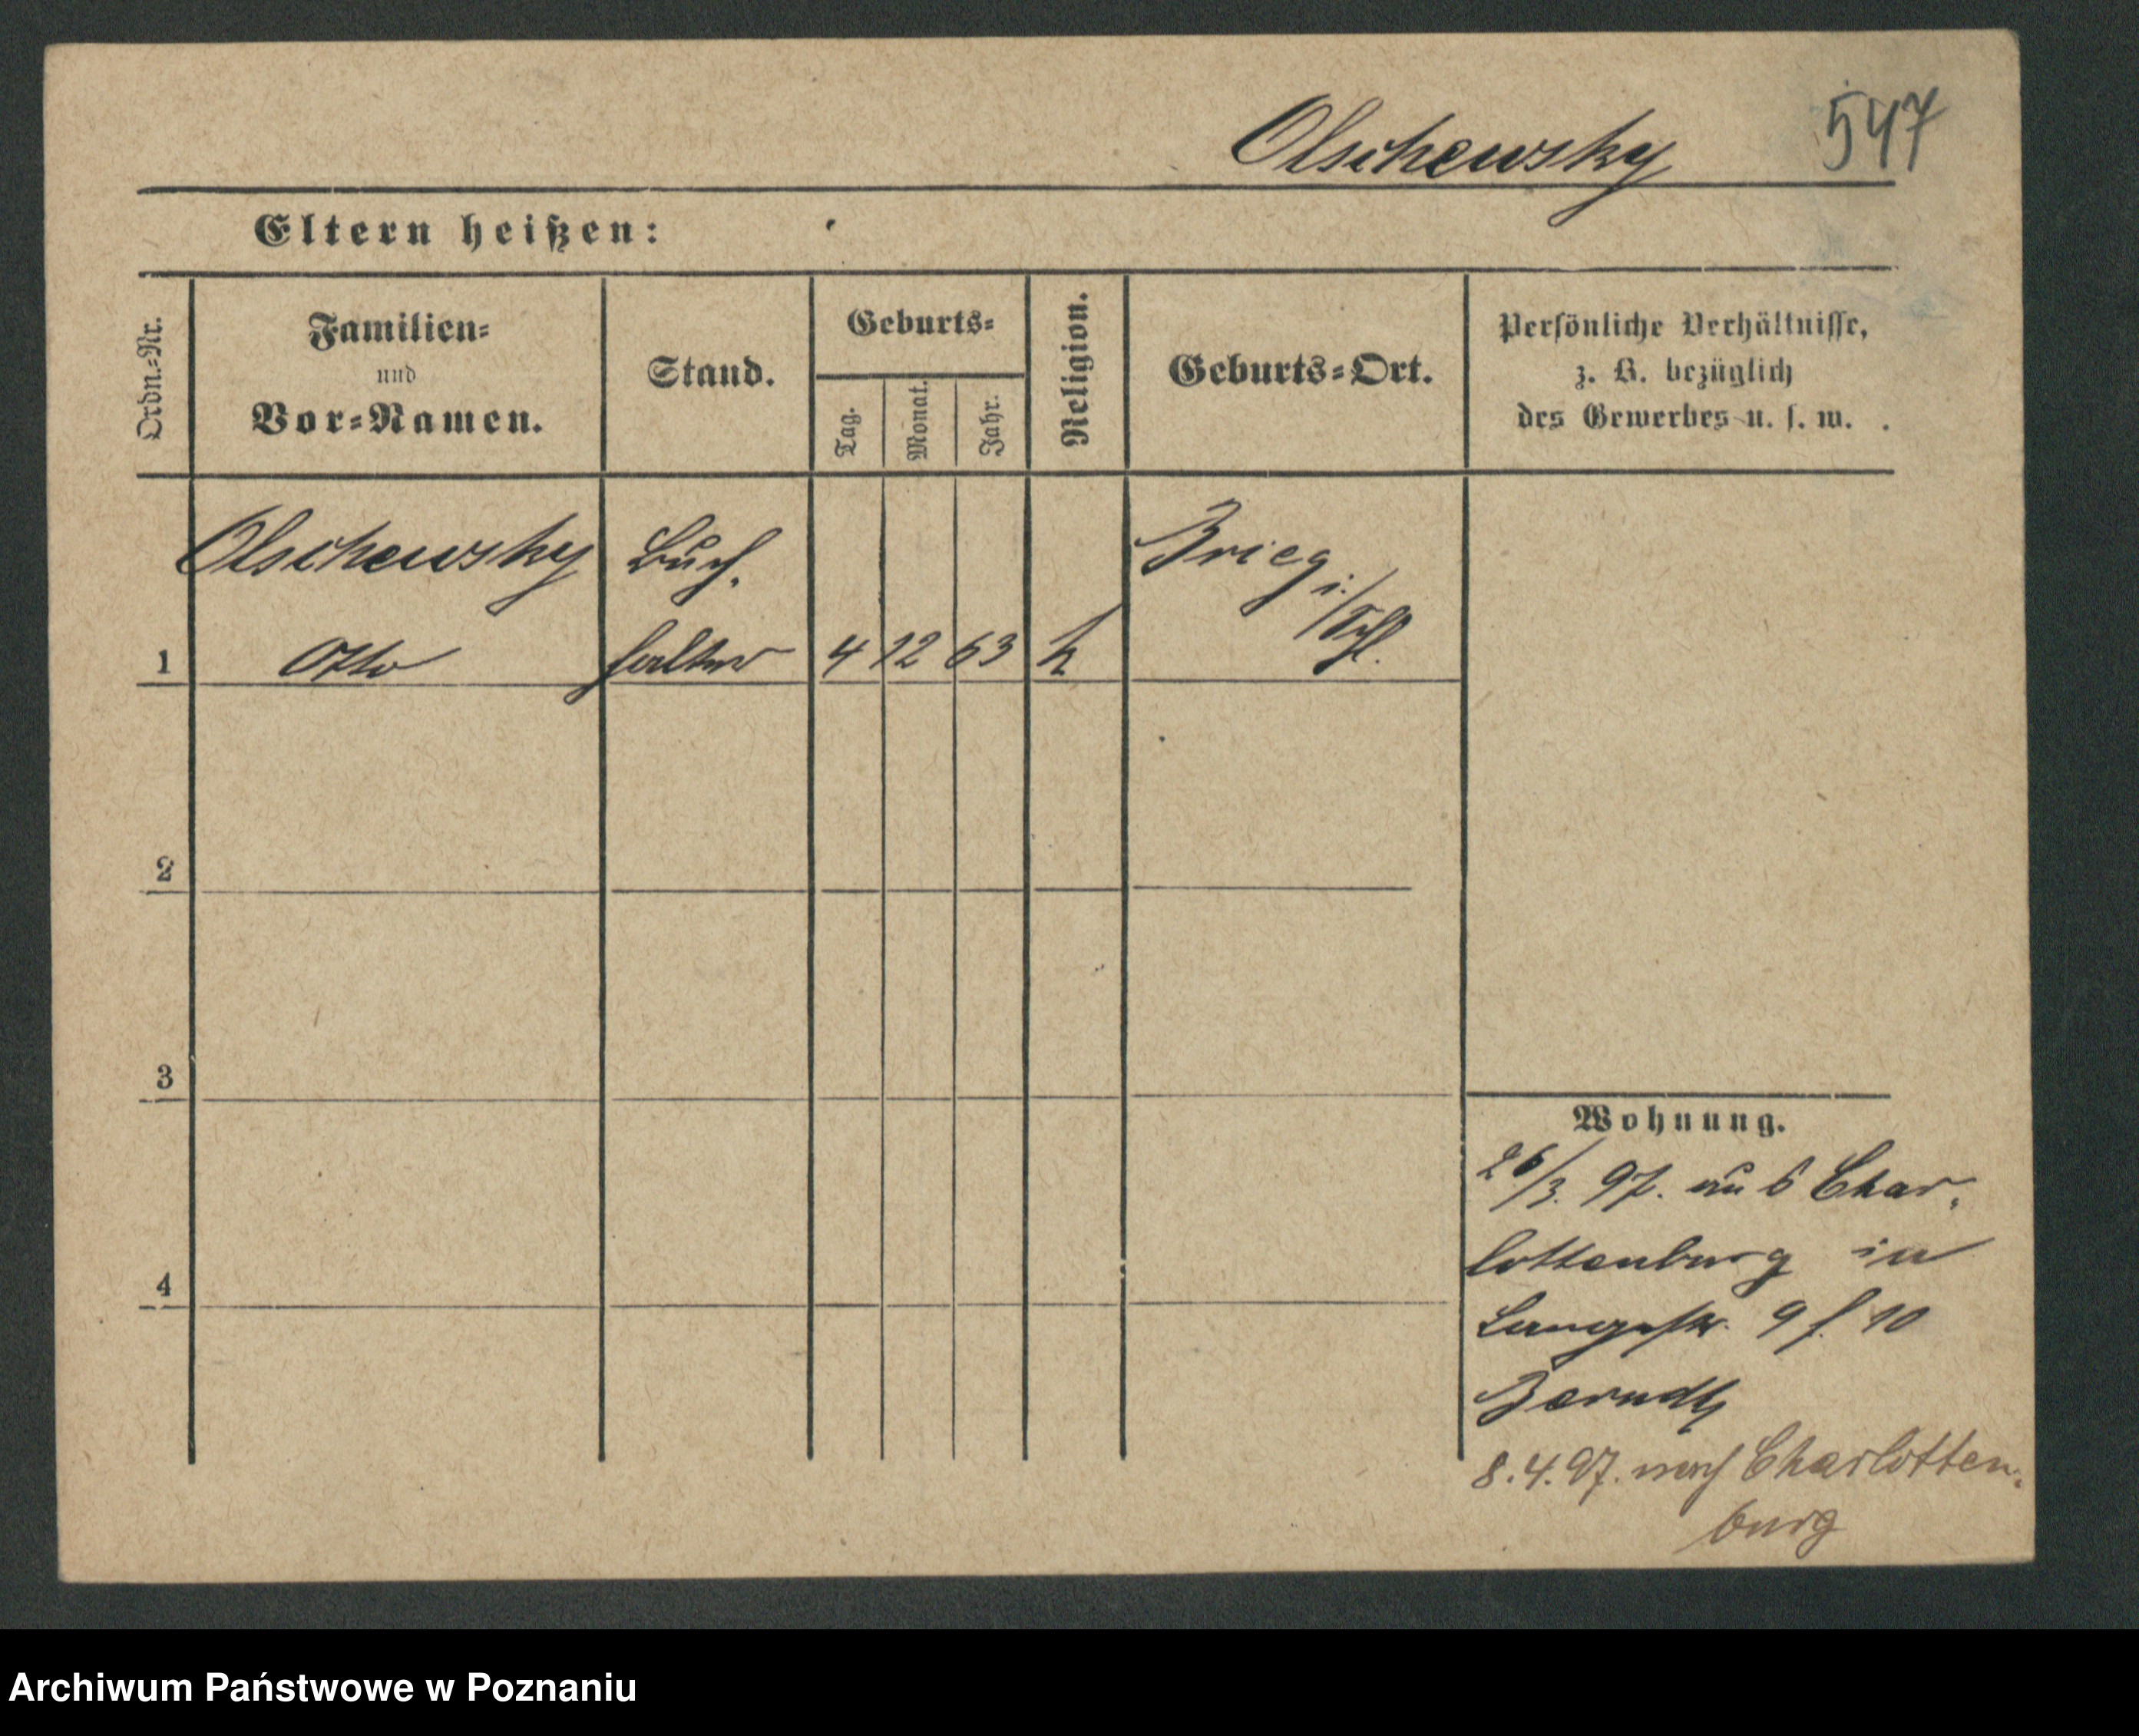 Olschewsky 547
Eltern heißen:
Ordn.=Nr.
Familien=
und
Vor=Namen.
Stand.
Geburts=
Tag.
Monat.
Jahr.
Religion.
Geburts=Ort.
Persönliche Verhältnisse,
z. B. bezüglich
des Gewerbes u. s. w.
Olschewsky Buch- Brieg i./Schl.
1 Otto halter 4 12 63 k
2
3
4
Wohnung.
26/3. 97. Char-
lottenburg in
Langestr. 9 f. 10
Berndt
8. 4. 97. nach Charlotten-
burg
Archiwum Państwowe w Poznaniu